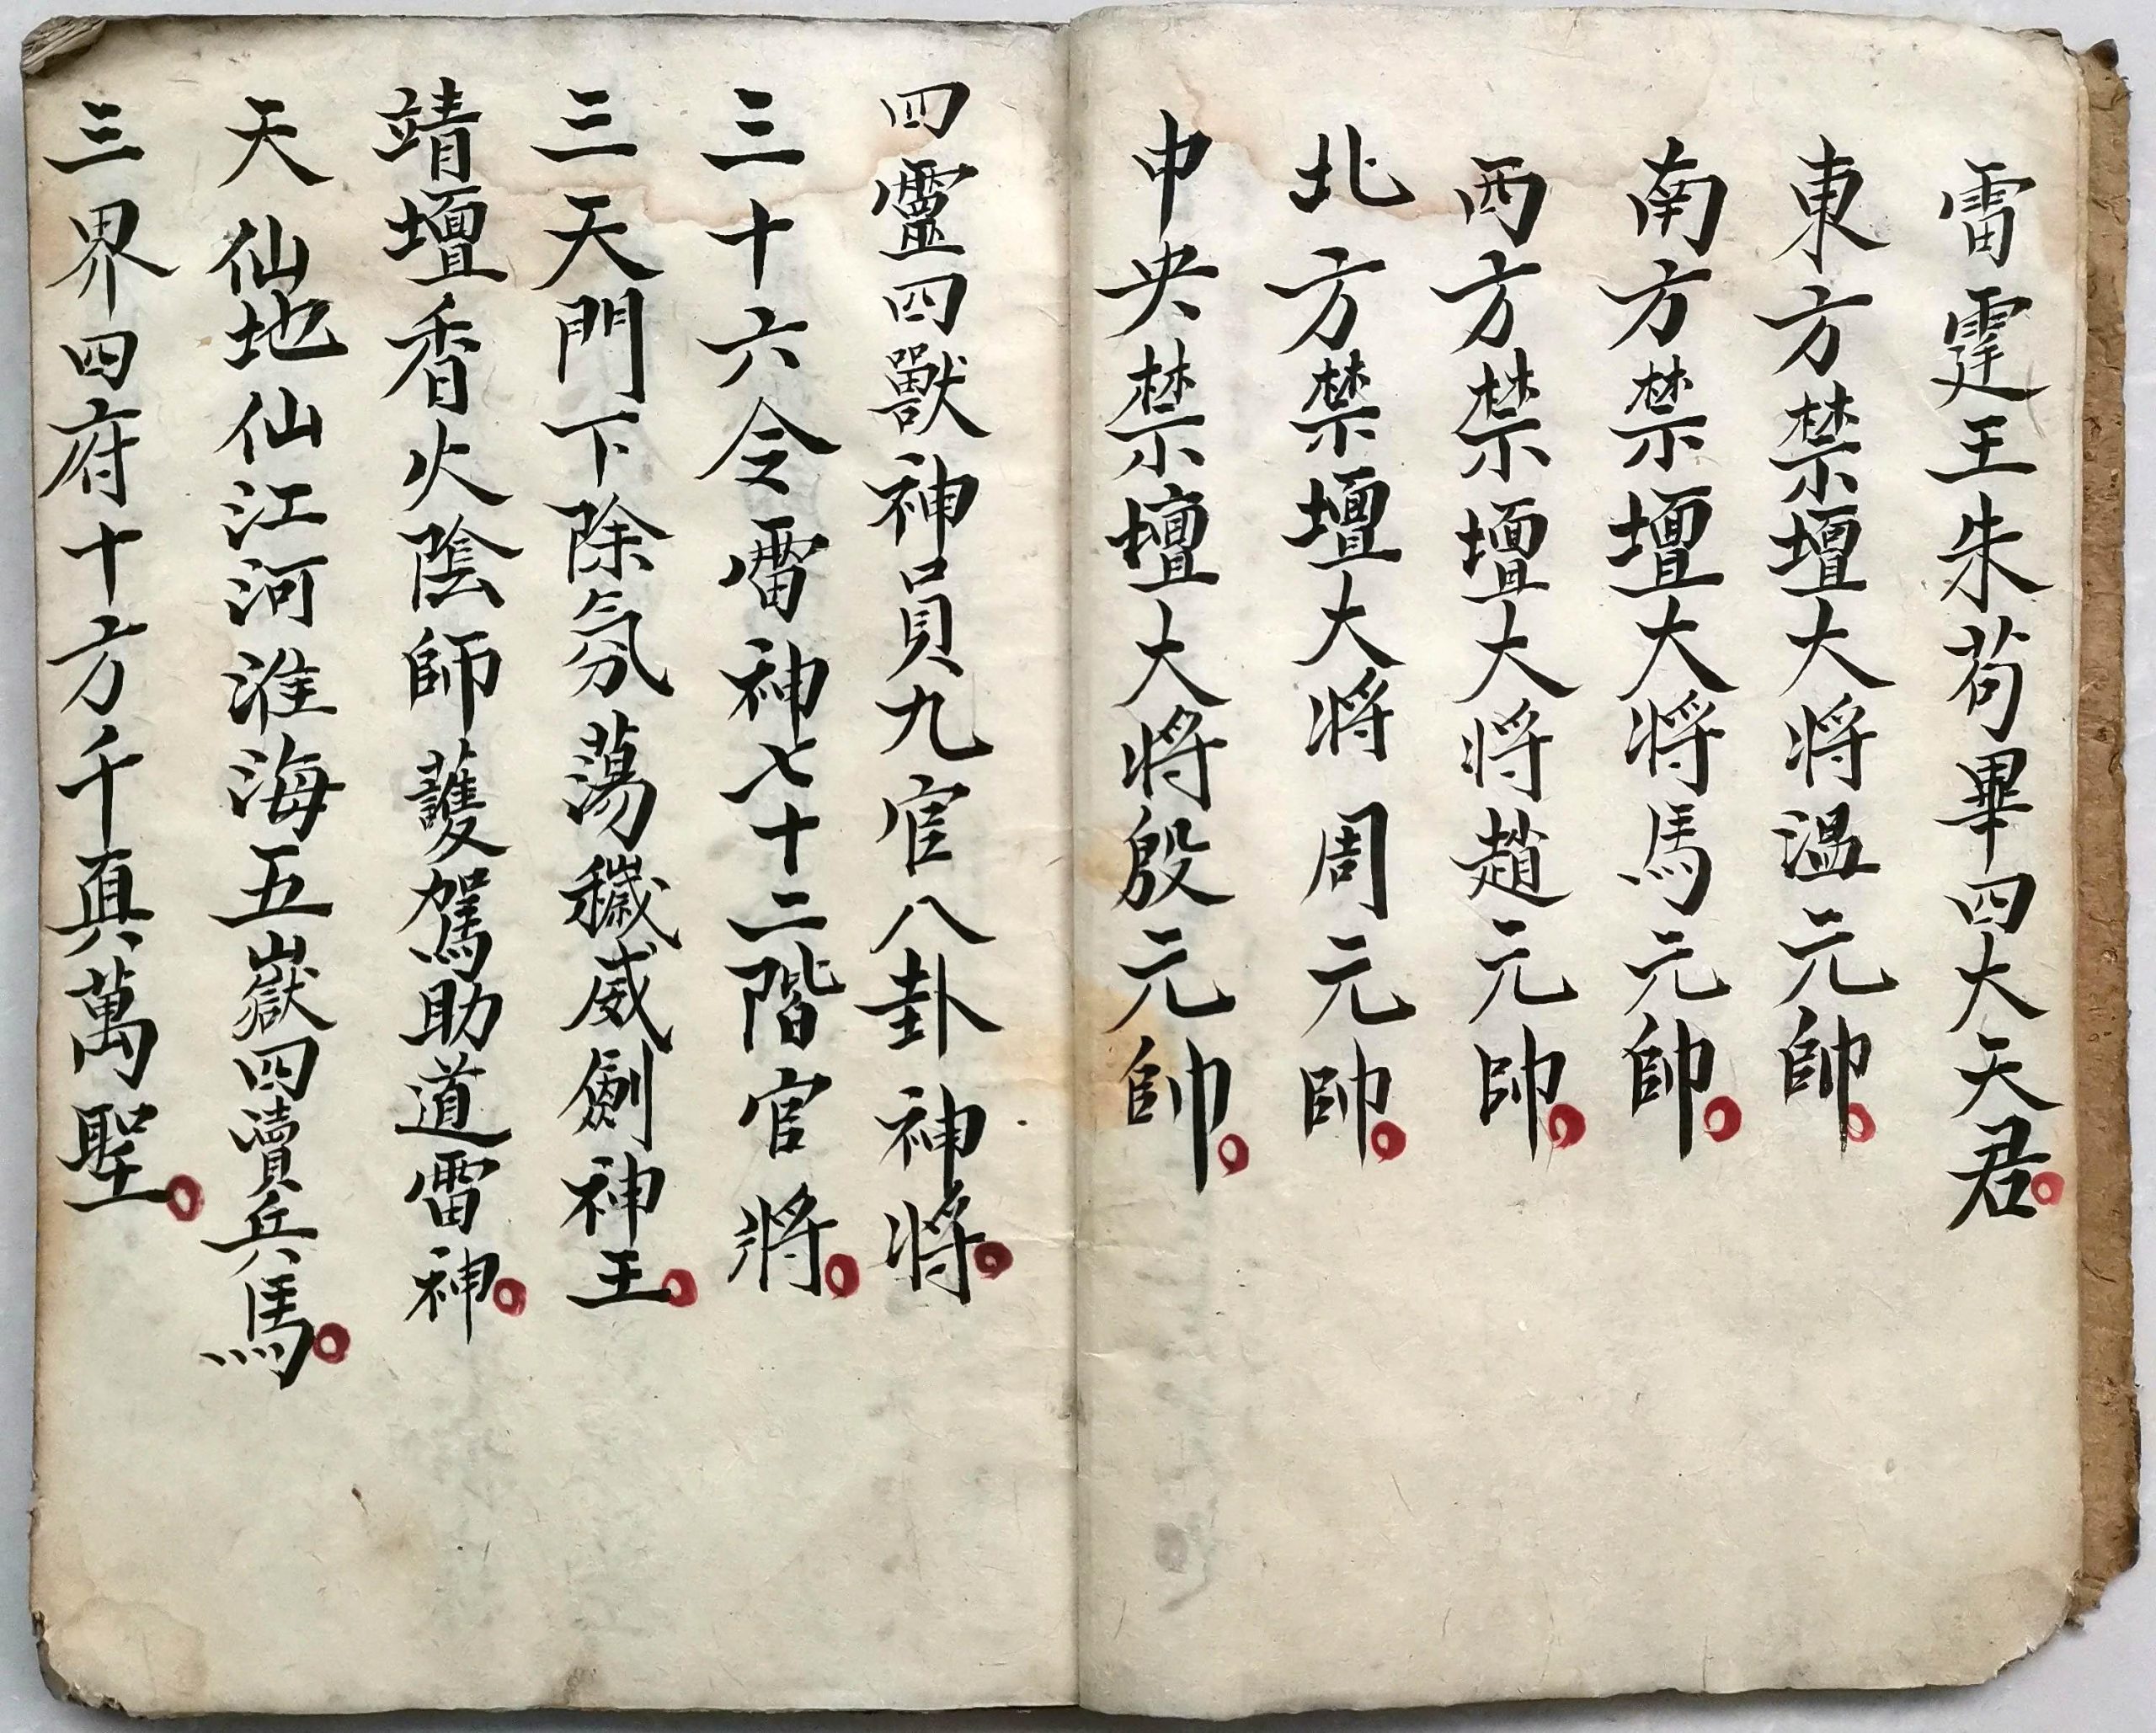 雷霆王朱苟畢四大天君。
東方禁壇大将溫元帥。
南方禁壇大将馬元帥。
西方禁壇大将趙元帥。
北方禁壇大将周元帥。
中央禁壇大将殷元帥。
四靈四獸神員九宦八卦神将。
三十六令雷神七十二階官将。
三天門下除氛蕩穢威劍神王。
靖壇香火陰師護駕助道雷神。
天仙地仙江河淮海五嶽四瀆兵馬。
三界四府十方千真萬聖。